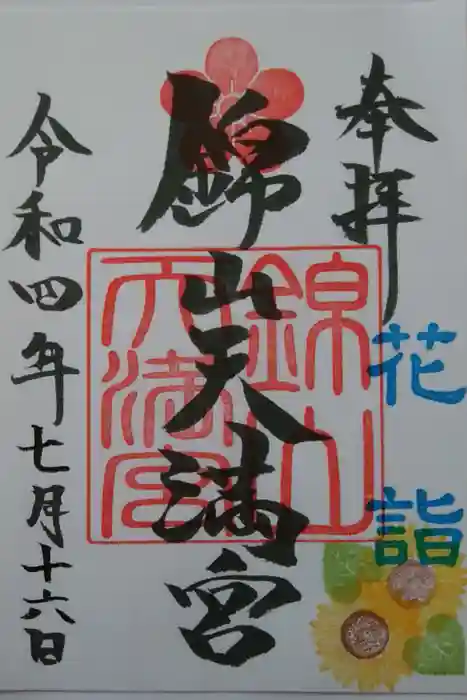 奉拝
花詣
錦山天満宮
錦山天満宮
令和四年七月十六日